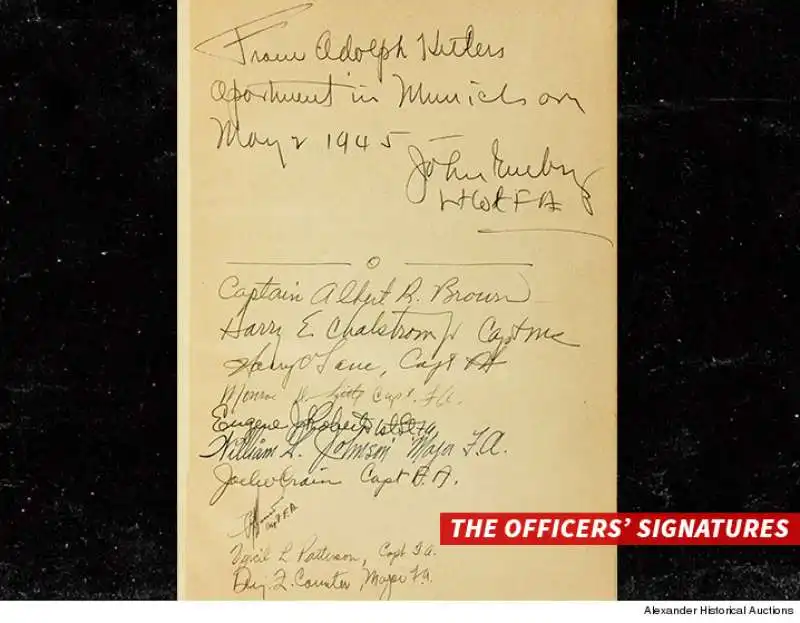 From Adolph Hitlers
apartment in Munich on
May 2 1945
John
Lt Col F A
Captain Albert R. Brown
Harry E Chalstrom Jr Capt MC
Harry O Lane, Capt FA
Monroe Capt. F.A.
Eugene J Roberts 1st Lt FA
William L. Johnson Major F.A.
Capt F.A.
Capt F.A.
Virgil L Patterson, Capt F.A.
Benj. L. Counter, Major F.A.
THE OFFICERS' SIGNATURES
Alexander Historical Auctions